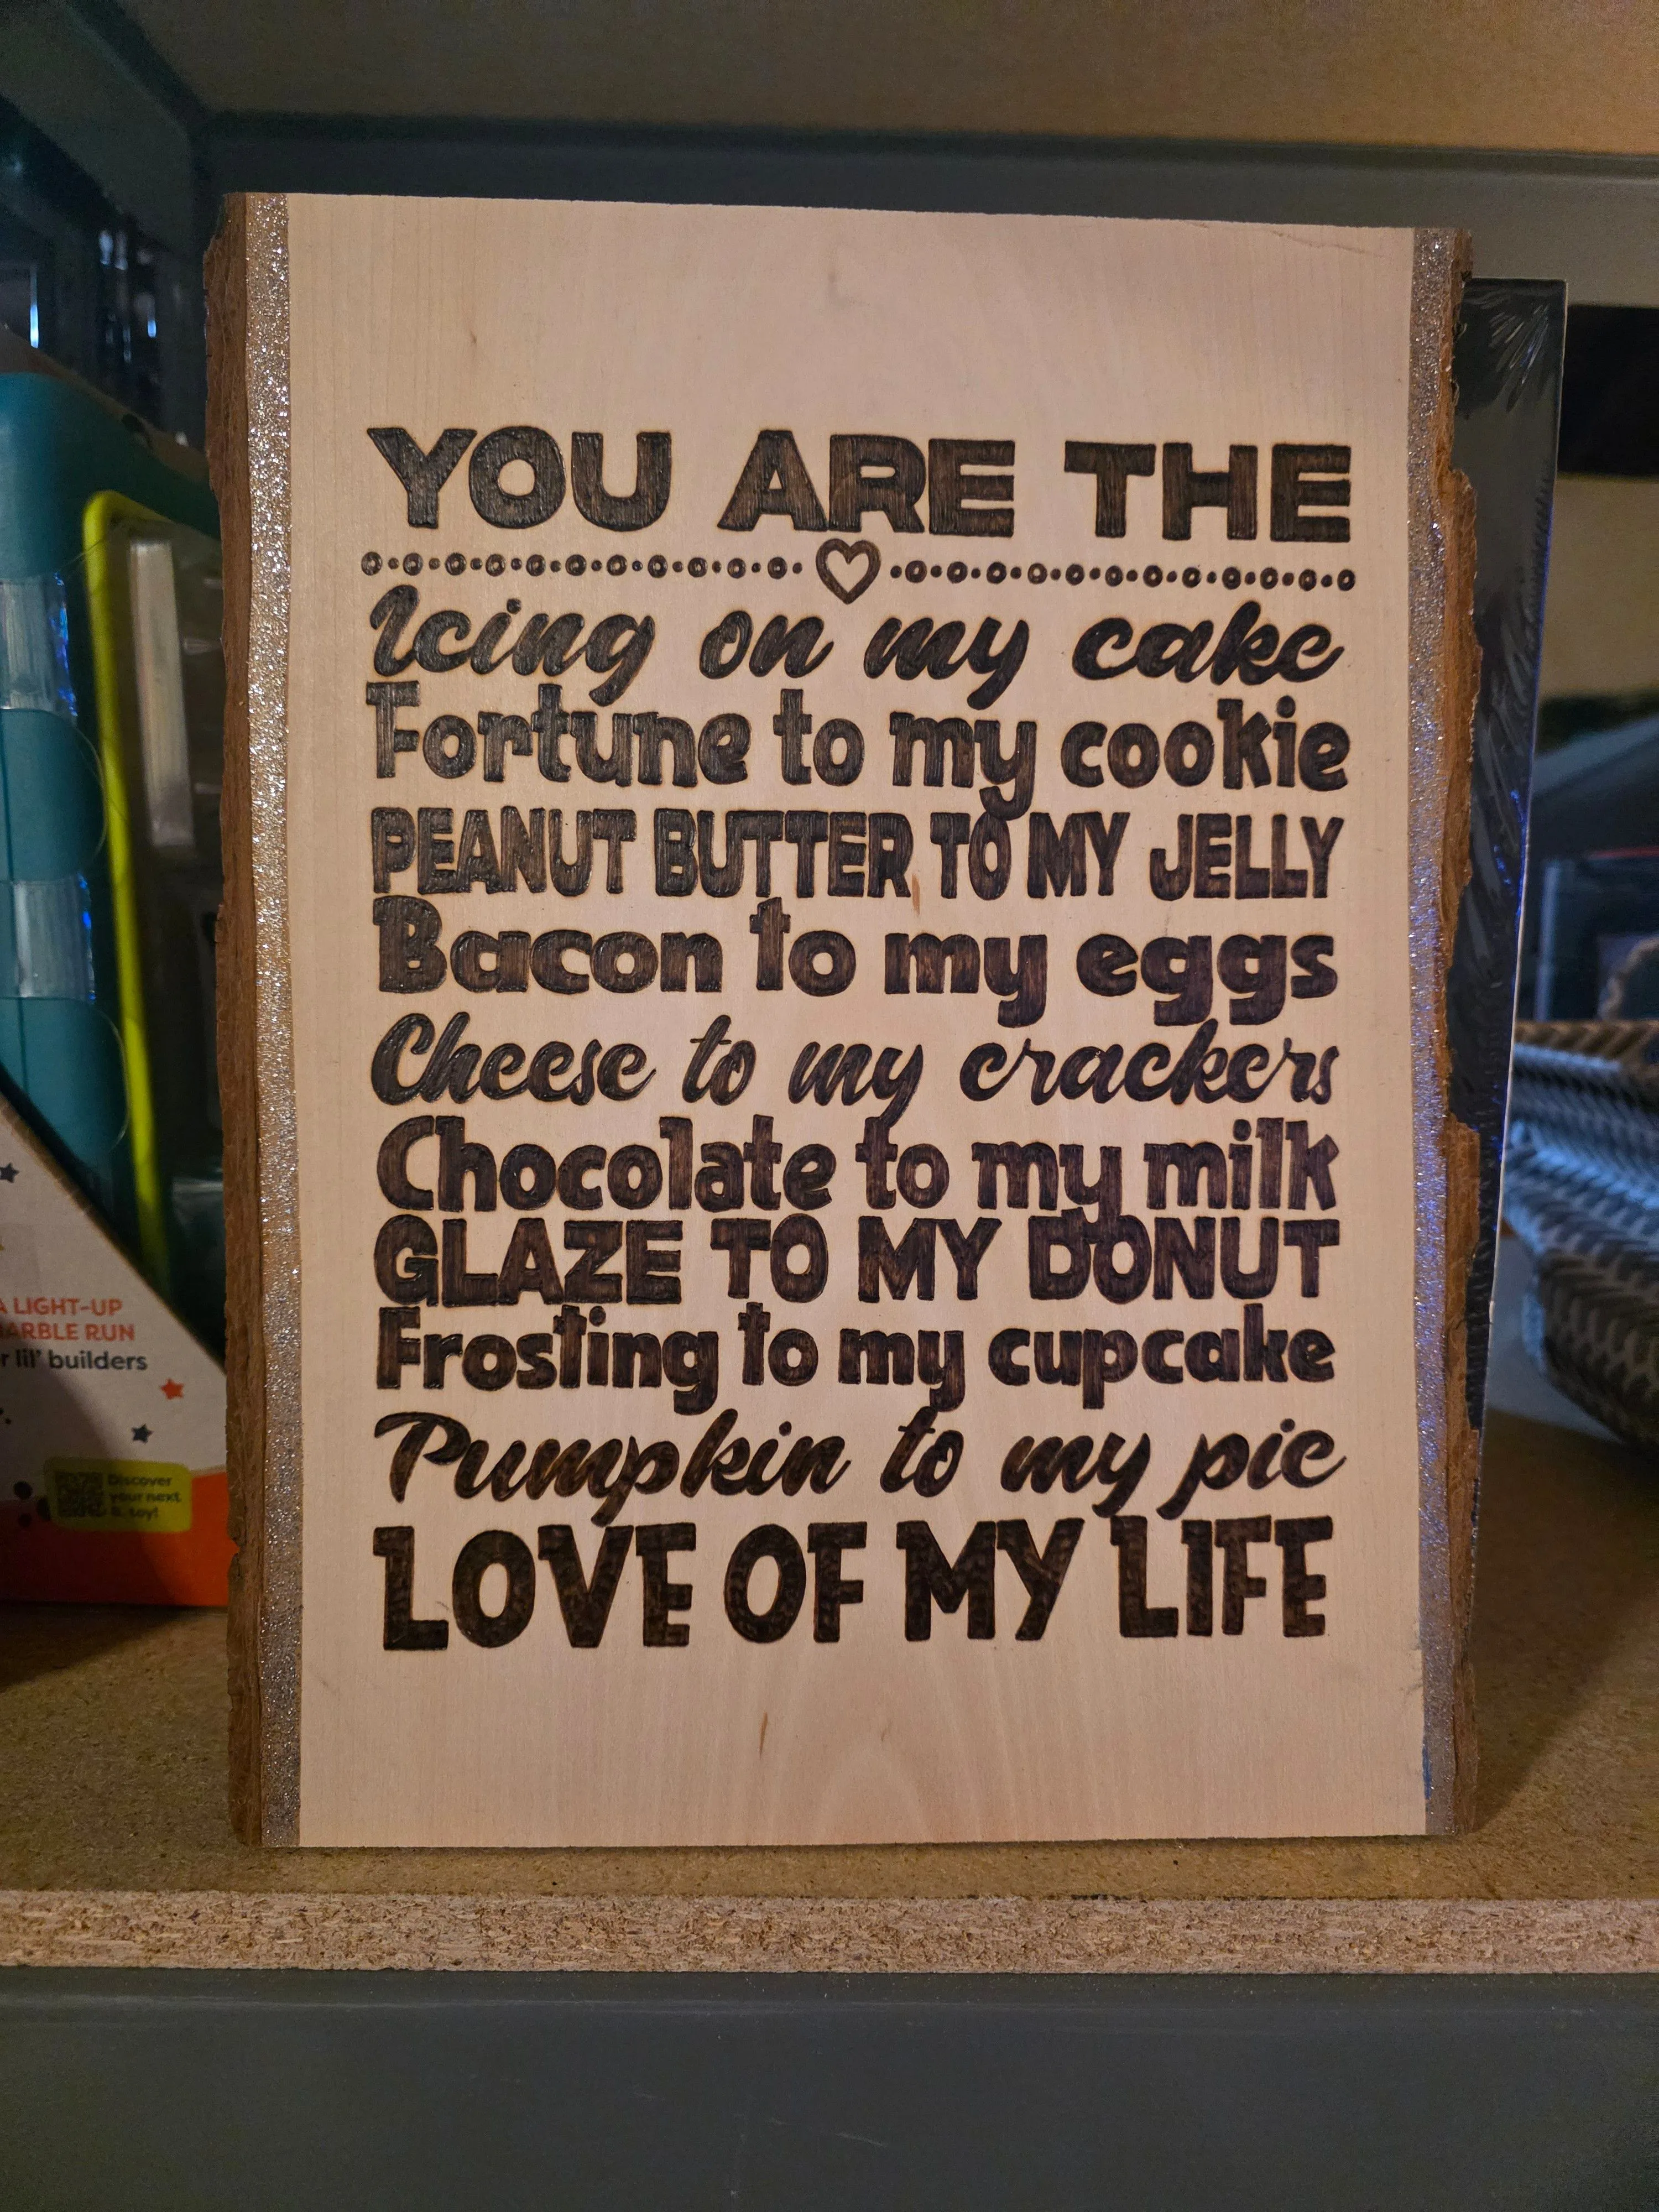 YOU ARE THE
Icing on my cake
Fortune to my cookie
PEANUT BUTTER TO MY JELLY
Bacon to my eggs
Cheese to my crackers
Chocolate to my milk
GLAZE TO MY DONUT
Frosting to my cupcake
Pumpkin to my pie
LOVE OF MY LIFE
A LIGHT-UP
ARBLE RUN
r lil' builders
Discover
your next
toy!